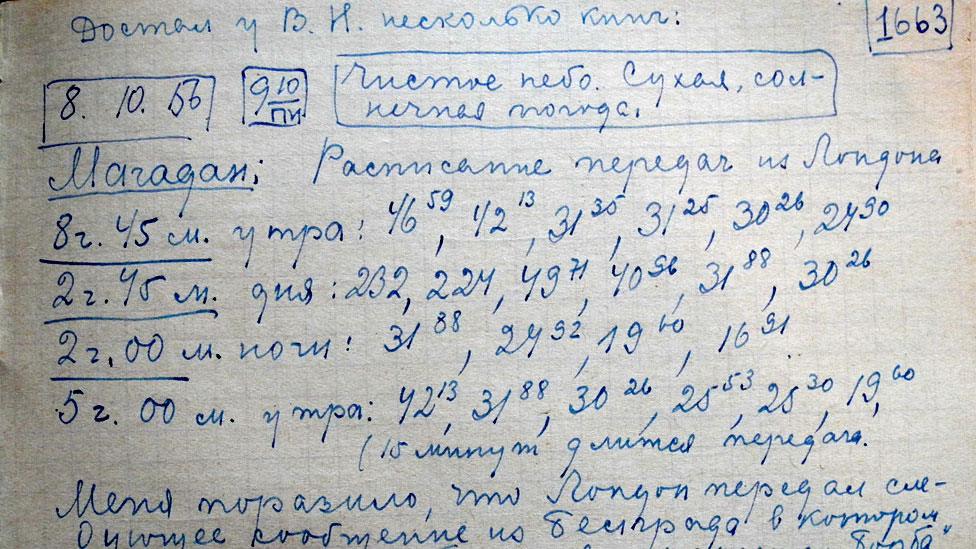 Достал у В. Н. несколько книг:
1663
8. 10. 56
9 10/ПИ
Чистое небо. Сухая, сол-
нечная погода.
Магадан: Расписание передач из Лондона
8 г. 45 м. утра: 46⁵⁹, 42¹³, 31³⁵, 31²⁵, 30²⁶, 24⁹⁰
2 г. 45 м. дня: 232, 224, 49⁷¹, 40⁹⁶, 31⁸⁸, 30²⁶
2 г. 00 м. ночи: 31⁸⁸, 24⁹², 19⁶⁰, 16⁹¹
5 г. 00 м. утра: 42¹³, 31⁸⁸, 30²⁶, 25⁵³, 25³⁰, 19,⁶⁰
(15 минут длится передача.
Меня поразило, что Лондон передал сле-
дующее сообщение из Белграда в котором
"Борба"